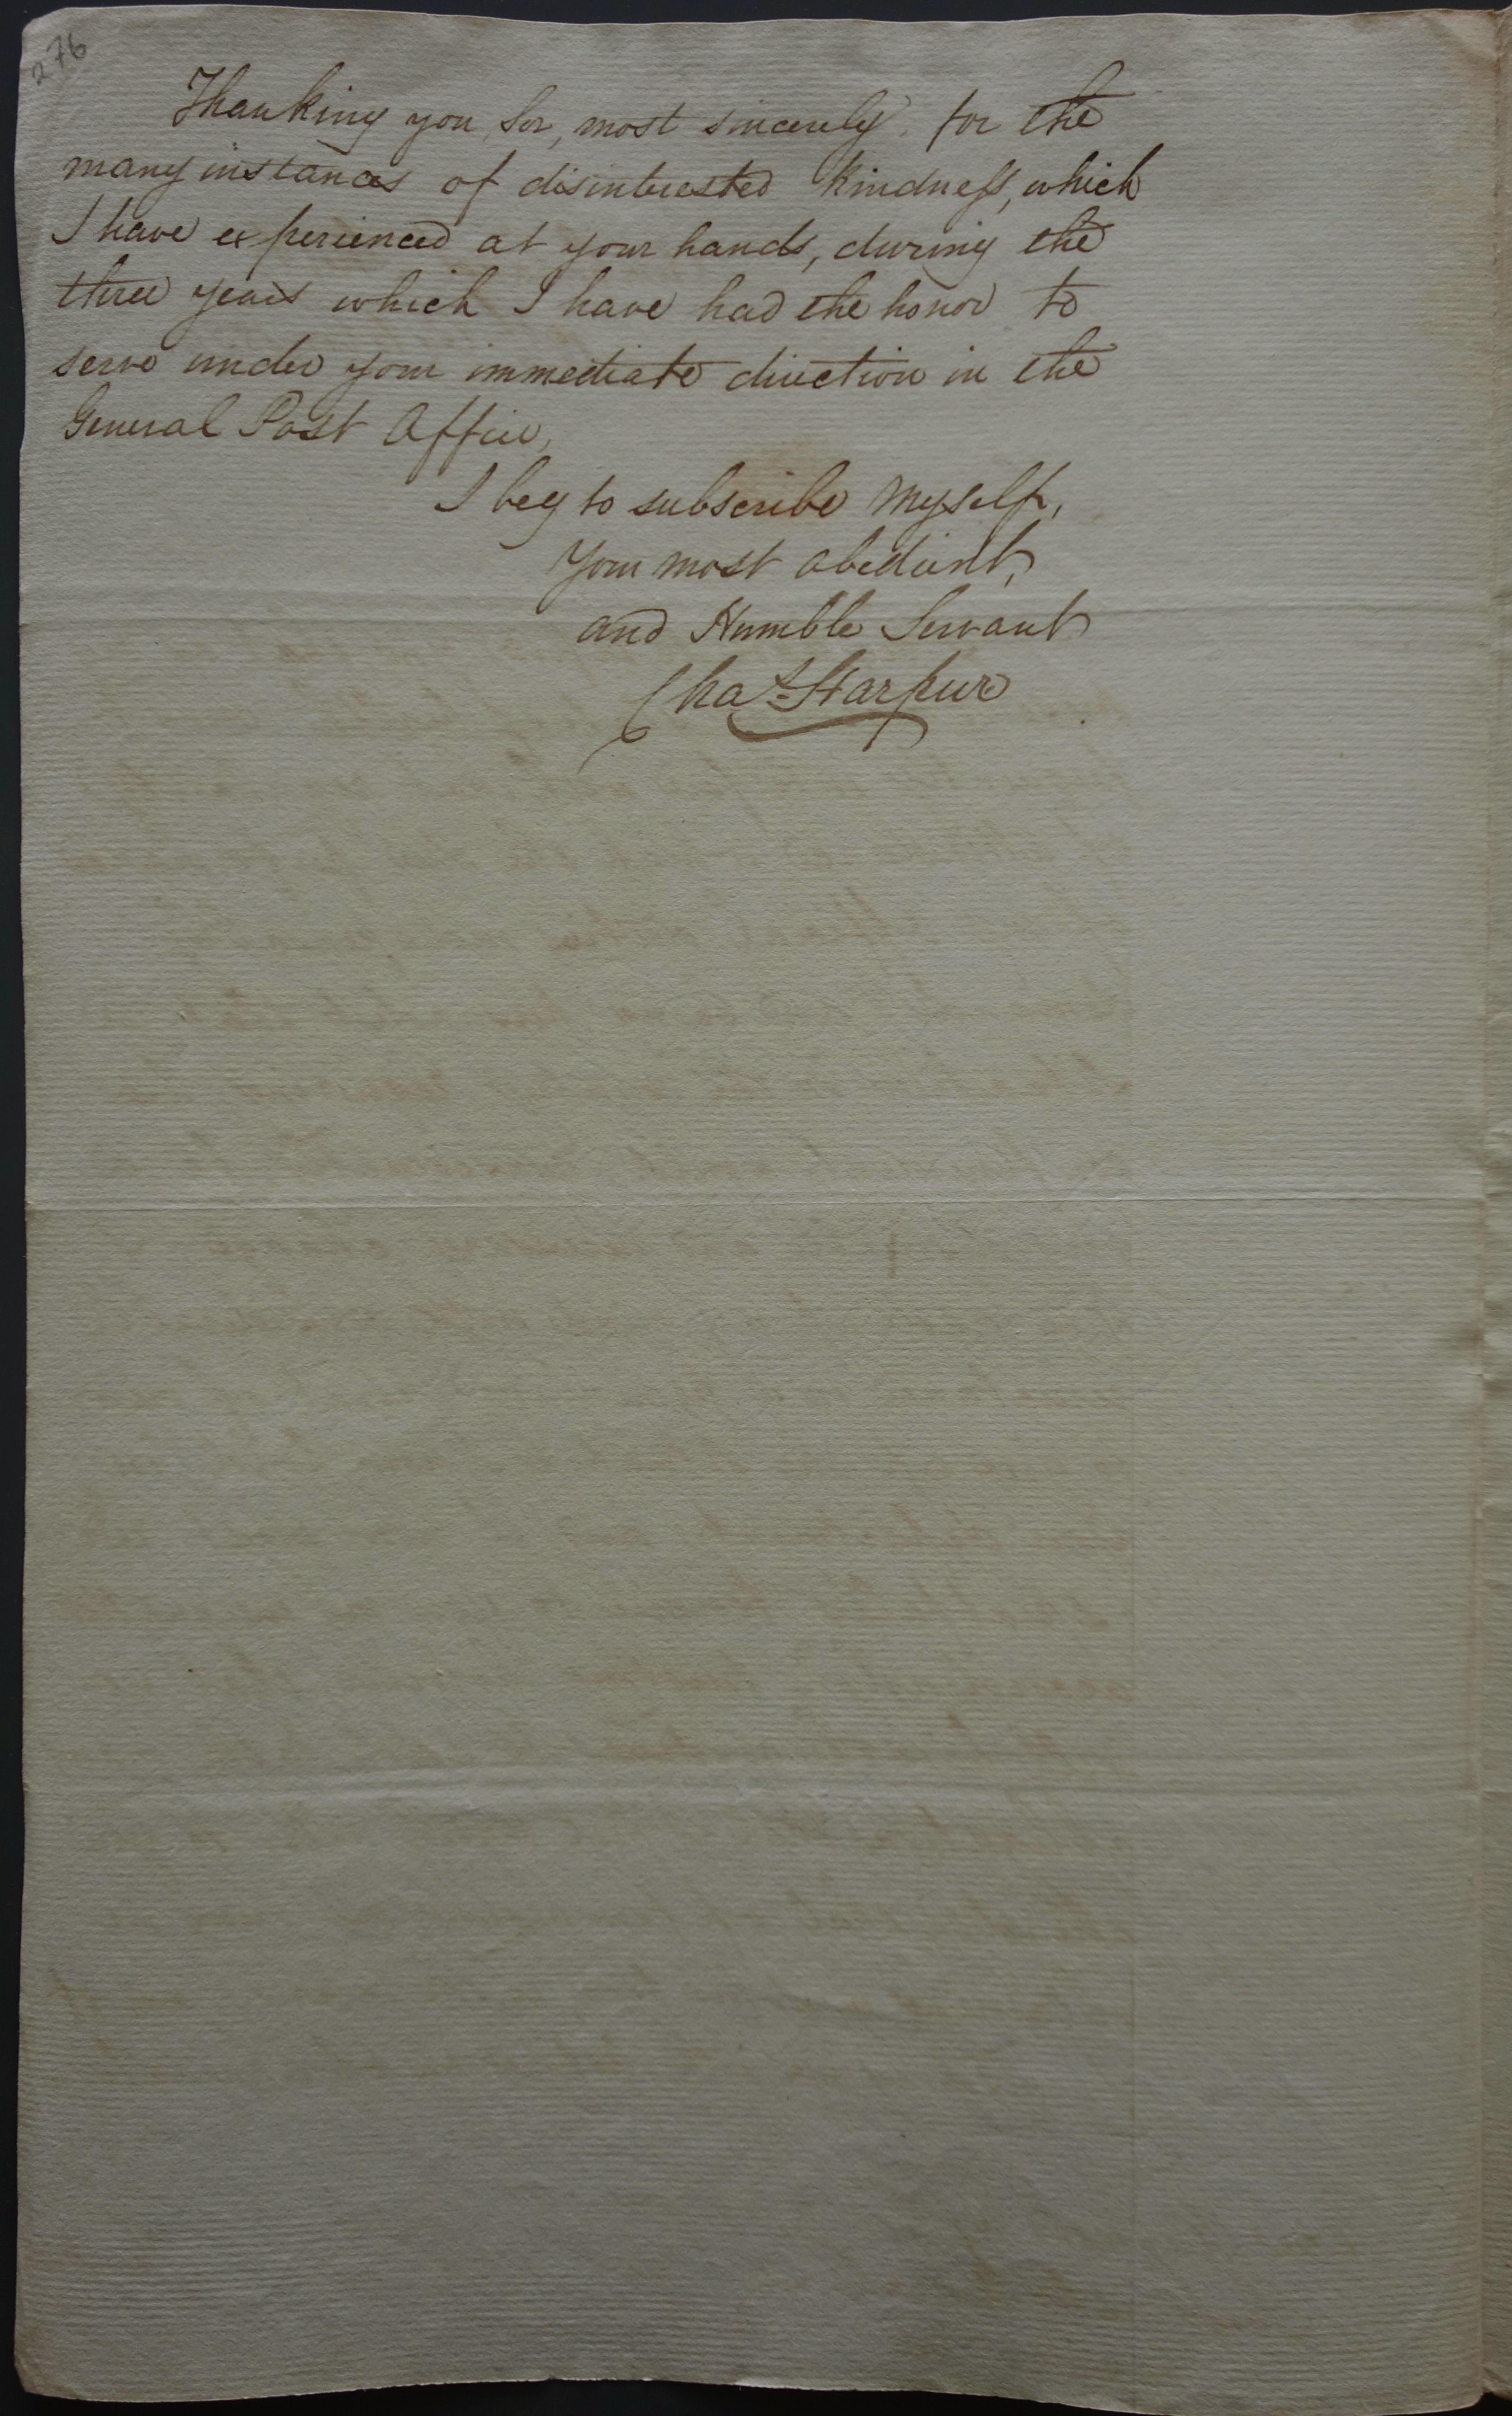 276
Thanking you Sir, most sincerely for the
many instances of disinterested kindness, which
I have experienced at your hands, during the
three years which I have had the honor to
serve under your immediate direction in the
General Post Office,
I beg to subscribe myself,
Your most obedient,
and Humble Servant
Chas Harpur